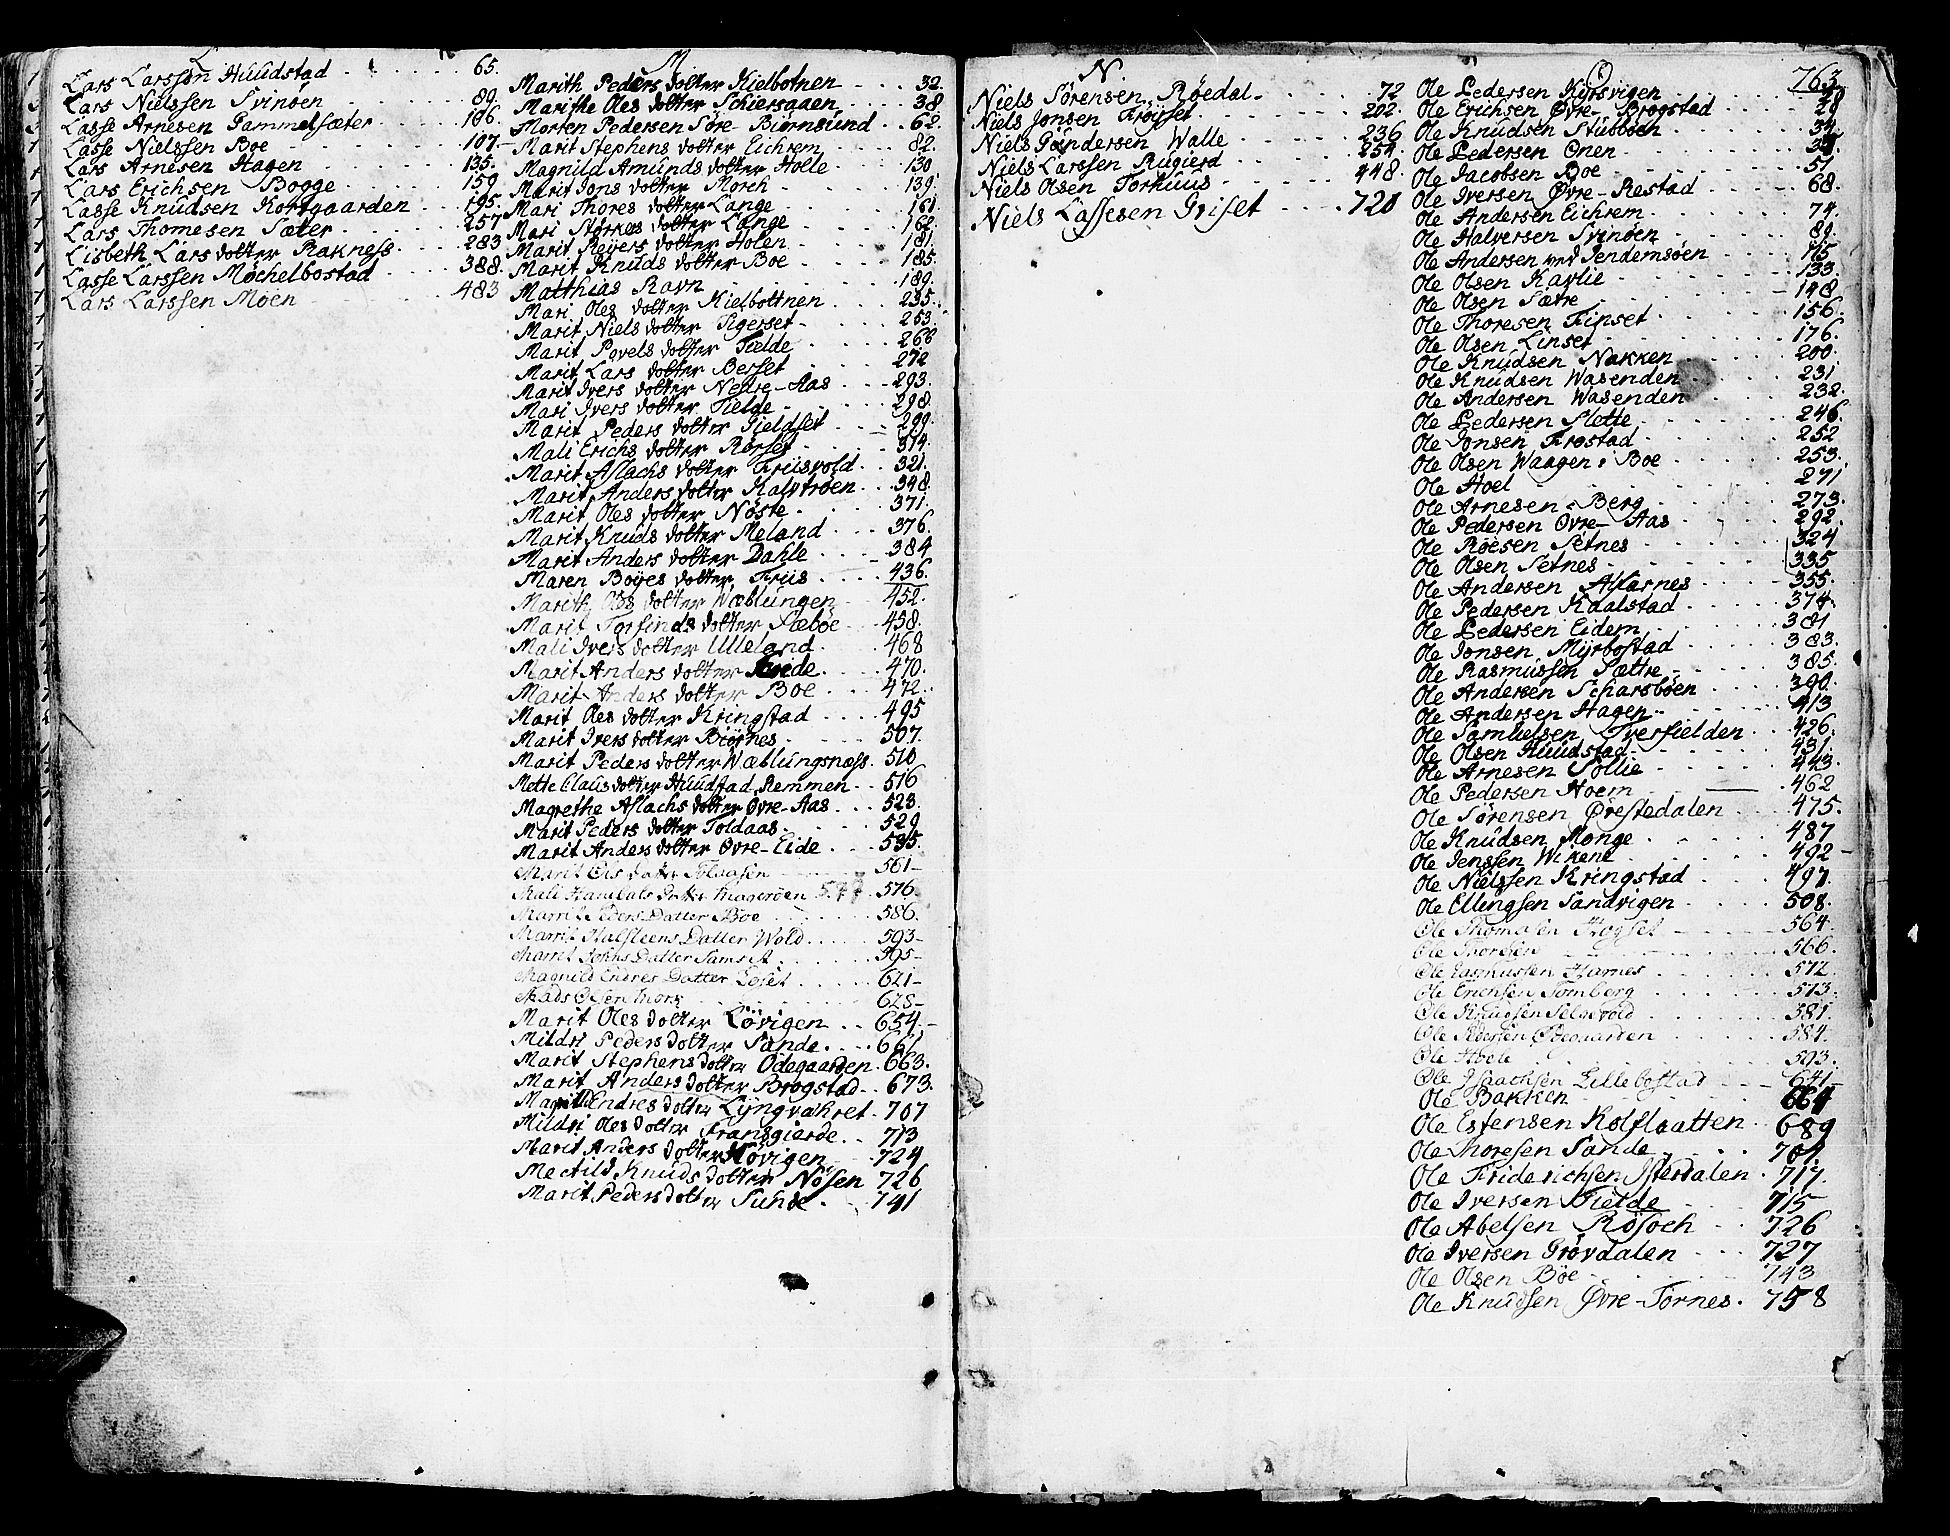 L
Lars Larssen Huudstad 65.
Lars Nielssen Svinøen 89.
Lasse Arnesen Gammelsæter 106.
Lasse Nielssen Boe 107.
Lars Arnesen Hagen 135.
Lars Erichsen Bogge 159.
Lasse Knudsen Kortgaarden 195.
Lars Thomesen Sæter 257
Lisbeth Lars dotter Rakness 283
Lasse Larssen Mochelbostad 388.
Lars Larssen Moen 483
M.
Marith Peders dotter Kielbotnen 32.
Marithe Oles dotter Schiersgaen 38
Morten Pedersen Søre-Biørnsund 62.
Marit Stephens dotter Eichrem 82.
Magnild Amunds dotter Holle 130
Marit Jons dotter Morch 139.
Mari Thores dotter Lange 161
Mari Storkers dotter Lange 162.
Marit Reyers dotter Holen 181.
Marit Knuds dotter Boe 185.
Matthias Ravn 189.
Mari Oles dotter Kielbottnen 235.
Marit Niels dotter Tigerset 253.
Marit Povels dotter Fielde 268
Marit Lars dotter Berset 272
Marit Ivers dotter Nedre-Aas 293.
Mari Ivers dotter Fielde 298.
Marit Peders dotter Gieldset 299.
Mali Erichs dotter Rørset 314.
Marit Aslachs dotter Friisvold 321.
Marit Anders dotter Kalvtrøen 348.
Marit Oles dotter Nøste 371.
Marit Knuds dotter Meland 376.
Marit Anders dotter Dahle 384
Maren Boyes dotter Friis 436.
Marith Oles dotter Wæblungen 452.
Marit Torfinds dotter Sæbøe 458.
Mali Ivers dotter Ulleland 468
Marit Anders dotter 470.
Marit Anders dotter Boe 472.
Marit Oles dotter Kringstad 495
Marit Ivers dotter Biørnes 507.
Marit Peders dotter Wæblungsnæss 510
Mette Claus dotter Huudstad, Remmen 516
Magrethe Aslachs dotter Øvre-Aas 523.
Marit Peders dotter Toldaas 529
Marit Anders dotter Øvre-Eide 535.
Marit Ols datter 561
Mali Hanibals dotter Magerøen 547 576
Marrit Peders Datter Bøe 586.
Marrit Halsteens Datter Wold 593
Marrit Johns Datter Samset 595
Magnild Endres Datter Løset 621
Mads Olsen Mork 628
Marit Oles dotter Løvigen 654.
Mildri Peders dotter Sande 661
Marit Stephens dotter Ødegaarden 663.
Marit Anders dotter Brogstad 673.
Magnild Endres dotter Lyngvahret 707
Mildri Oles dotter Fransgierde 713
Marit Anders dotter Høvigen 724
Mectild Knuds dotter Nøsen 726
Marit Peders dotter Sunde 741
N.
Niels Sørensen Røedal 72
Niels Jonsen Frøyset 202.
Niels Gundersen Walle 236
Niels Larssen Rugierd 254.
Niels Olsen Torhuus 448.
Niels Lassesen Griset 721
O
763
Ole Pedersen Kursvigen
Ole Erichsen Øvre-Brogstad 28
Ole Knudsen Stubbøen
Ole Pedersen Onen
Ole Jacobsen Boe 51
Ole Iversen Øvre-Restad 68.
Ole Andersen Eichrem 74.
Ole Halversen Svinøen 89.
Ole Andersen ved Jendemsøen 115
Ole Olsen Kavlie 133.
Ole Olsen Sætre 148
Ole Thoresen Finset 156.
Ole Olsen Linset 176.
Ole Knudsen Nakken 200.
Ole Knudsen Wasenden 231
Ole Andersen Wasenden 232
Ole Pedersen Slotte 246
Ole Jonsen Frostad 252
Ole Olsen Waagen i Boe 253.
Ole Hoel 271
Ole Arnesen Berg 273.
Ole Pedersen Øvre-Aas 292.
Ole Roesen Setnes 324
Ole Olsen Setnes 335
Ole Andersen Alfarnes 355.
Ole Pedersen Kaalstad 374.
Ole Pedersen Eidem 381
Ole Jonsen Myrbostad 383.
Ole Rasmussen Sættre 385.
Ole Andersen Scharsbøen 390.
Ole Andersen Hagen 413
Ole Samuelsen Tverfielden 426.
Ole Olsen Huudstad 431.
Ole Arnesen Sollie 443.
Ole Pedersen Hoem 462
Ole Sørensen Ørestedalen 475.
Ole Knudsen Monge 487
Ole Jenssen Wikene 492
Ole Nielssen Kringstad 497.
Ole Ellingsen Sandvigen 508.
Ole Thomasen Frogset 564.
Ole Thoresen 566.
Ole Rasmussen Harnes 572.
Ole Erichsen Tomberg 573.
Ole Knudsen Selsvold 581.
Ole Pedersen Boegaarden 584.
Ole Hoele 593.
Ole Isachsen Lillebostad 641
Ole Bakken 664
Ole Estensen Kolflaatten 689
Ole Thoresen Sande 701
Ole Friderichsen Isterdalen 717.
Ole Iversen Fielde 715
Ole Abelsen Røsoch 726
Ole Iversen Grøvdalen 727
Ole Olsen Bøe 743
Ole Knudsen Øvre-Tornes 758